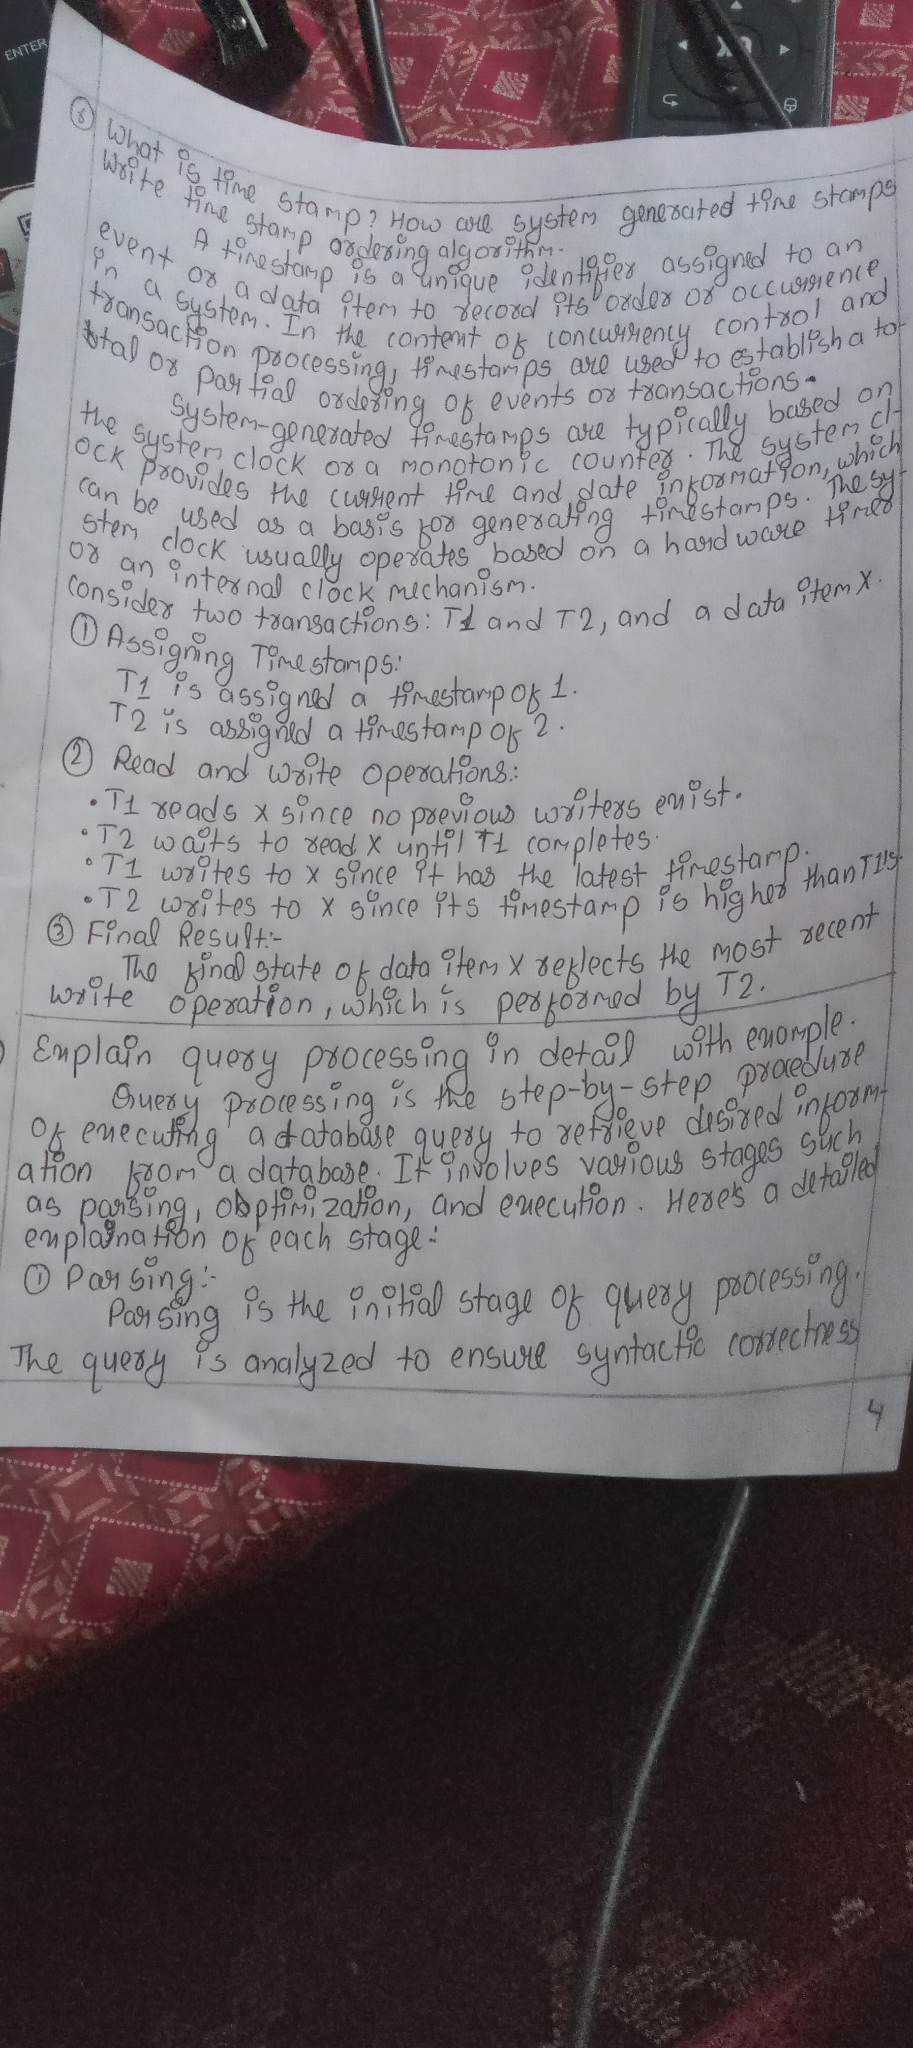 ENTER
⑧ What is time stamp? How are system generated time stamps
Write time stamp ordering algorithm.
A timestamp is a unique identifier assigned to an
event or a data item to record its order or occurrence
in a system. In the content of concurrency control and
transaction processing, timestamps are used to establish a to-
total or partial ordering of events or transactions.
System-generated timestamps are typically based on
the system clock or a monotonic counter. The system cl-
ock provides the current time and date information, which
can be used as a basis for generating timestamps. The sy-
stem clock usually operates based on a hardware timer
or an internal clock mechanism.
consider two transactions: T1 and T2, and a data item X.
① Assigning Timestamps:
T1 is assigned a timestamp of 1.
T2 is assigned a timestamp of 2.
② Read and write operations:
• T1 reads x since no previous writers exist.
• T2 waits to read X until T1 completes.
• T1 writes to x since it has the latest timestamp.
• T2 writes to x since its timestamp is higher than T1's
③ Final Result:-
The final state of data item x reflects the most recent
write operation, which is performed by T2.
Explain query processing in detail with example.
Query processing is the step-by-step procedure
of executing a database query to retrieve desired inform-
ation from a database. It involves various stages such
as parsing, obptimization, and execution. Here's a detailed
explaination of each stage:
① Parsing:-
Parsing is the initial stage of query processing.
The query is analyzed to ensure syntactic correctness
4